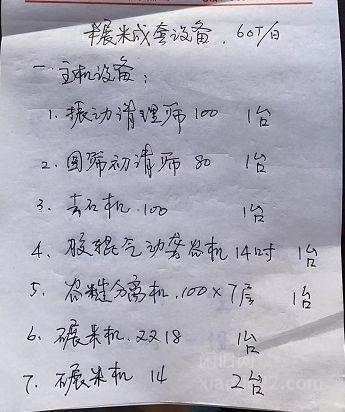 碾米成套设备.60T/日
一.主机设备:
1.振动清理筛100 1台
2.圆筛初清筛80 1台
3.去石机.100 1台
4.胶辊气动砻谷机14吋 1台
5.谷糙分离机.100×7层 1台
6.碾米机.2218 1台
7.碾米机 14 2台